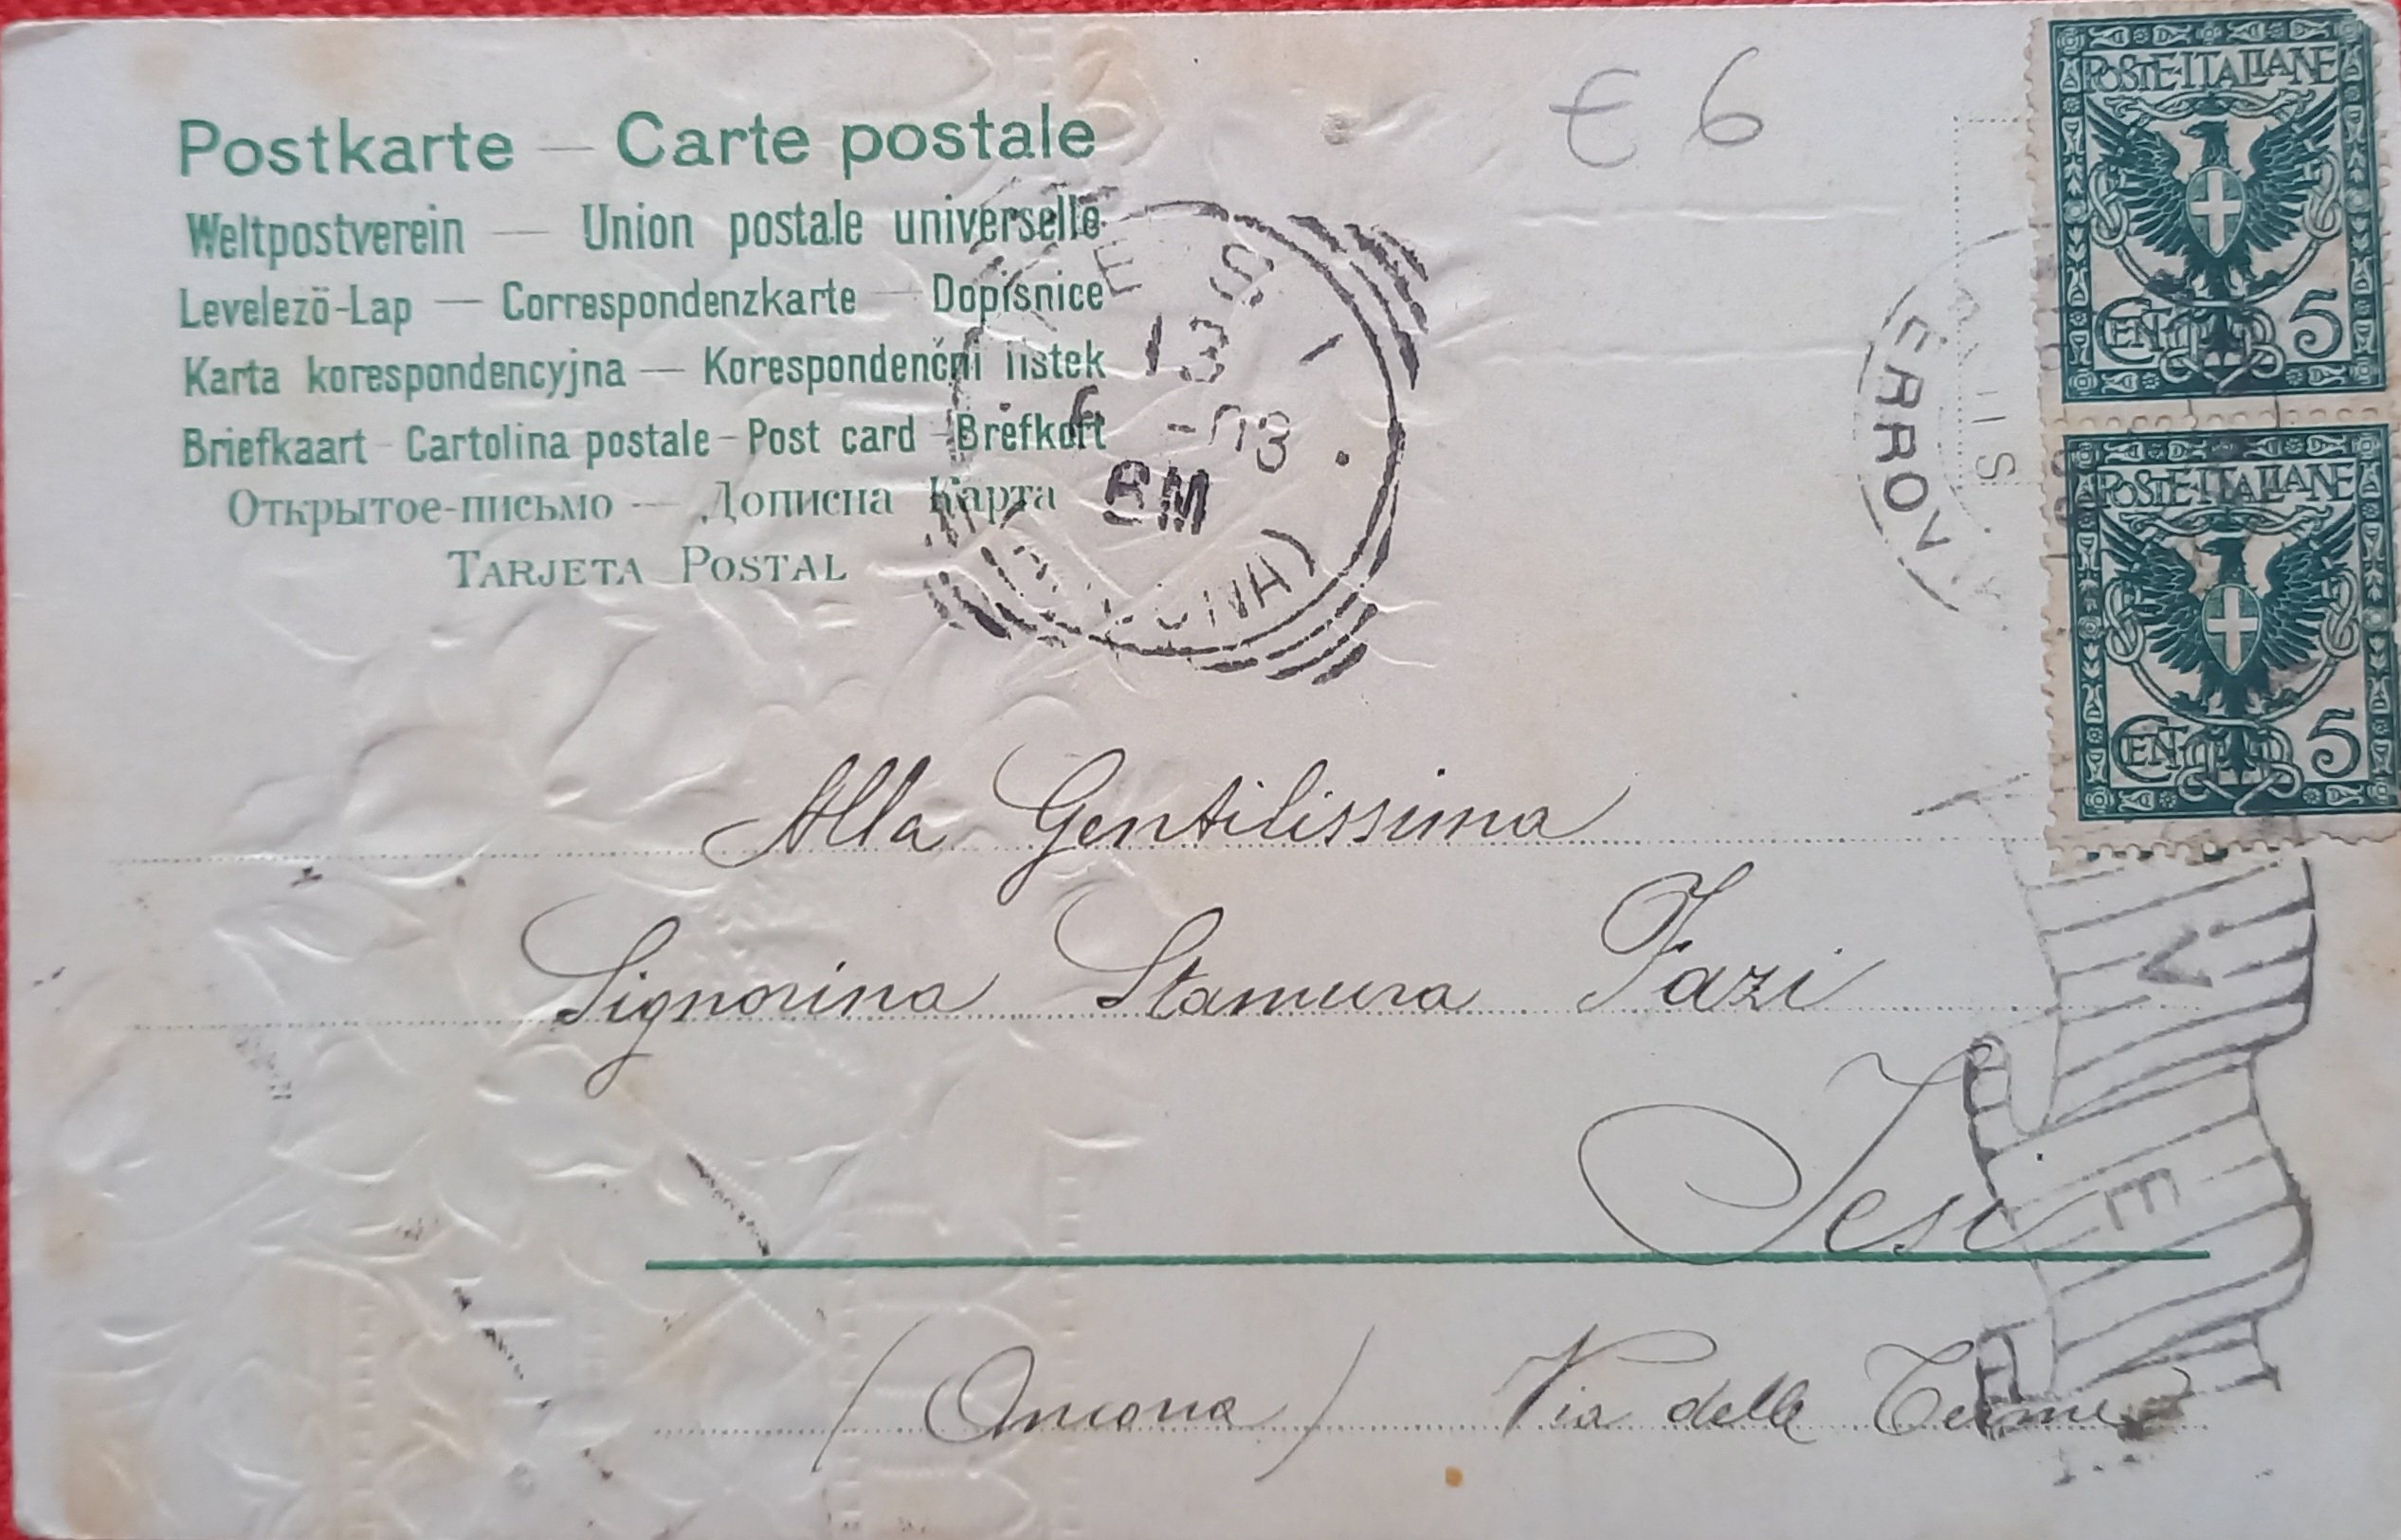 Postkarte — Carte postale
Weltpostverein — Union postale universelle
Levelező-Lap — Correspondenzkarte — Dopisnice
Karta korespondencyjna — Korespondenční lístek
Briefkaart - Cartolina postale - Post card - Brefkort
Открытое-письмо — Дописна Карта
TARJETA POSTAL
€ 6
POSTE·ITALIANE
CENT. 5
POSTE·ITALIANE
CENT. 5
ESI
13
6 -03
8M
Alla Gentilissima
Signorina Stamura Fazi
Jesi
(Ancona) Via delle Terme
V
E